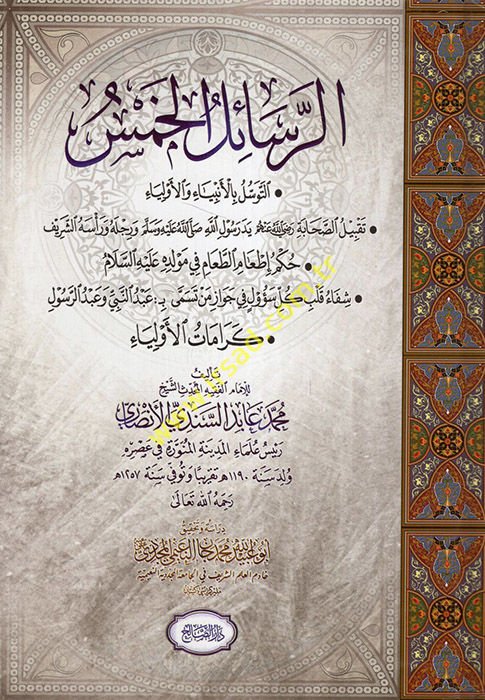 الرَّسَائِلُ الخَمْسُ
• التَّوَسُّلُ بِالأَنْبِيَاءِ وَالأَوْلِيَاءِ
• تَقْبِيلُ الصَّحَابَةِ رَضِيَ اللَّهُ عَنْهُمْ يَدَ رَسُولِ اللَّهِ صَلَّى اللَّهُ عَلَيْهِ وَسَلَّمَ وَرِجْلَهُ وَرَأْسَهُ الشَّرِيفَ
• حُكْمُ إِطْعَامِ الطَّعَامِ فِي مَوْلِدِهِ عَلَيْهِ السَّلَامُ
• شِفَاءُ قَلْبِ كُلِّ سَؤُولٍ فِي جَوَازِ مَنْ تَسَمَّى بِـ: عَبْدِ النَّبِيِّ وَعَبْدِ الرَّسُولِ
• كَرَامَاتُ الأَوْلِيَاءِ
تَأْلِيفُ
لِلإِمَامِ الفَقِيهِ المُحَدِّثِ الشَّيْخِ
مُحَمَّد عَابِد السِّنْدِيِّ الأَنْصَارِيِّ
رَئِيسُ عُلَمَاءِ المَدِينَةِ المُنَوَّرَةِ فِي عَصْرِهِ
وُلِدَ سَنَةَ ١١٩٠هـ تَقْرِيبًا وَتُوُفِّيَ سَنَةَ ١٢٥٧هـ
رَحِمَهُ اللَّهُ تَعَالَى
دِرَاسَةُ وَتَحْقِيقُ
خَادِمُ العِلْمِ الشَّرِيفِ فِي الجَامِعَةِ المُجَدِّدِيَّةِ النَّعِيمِيَّةِ
دَارُ الصَّالِح